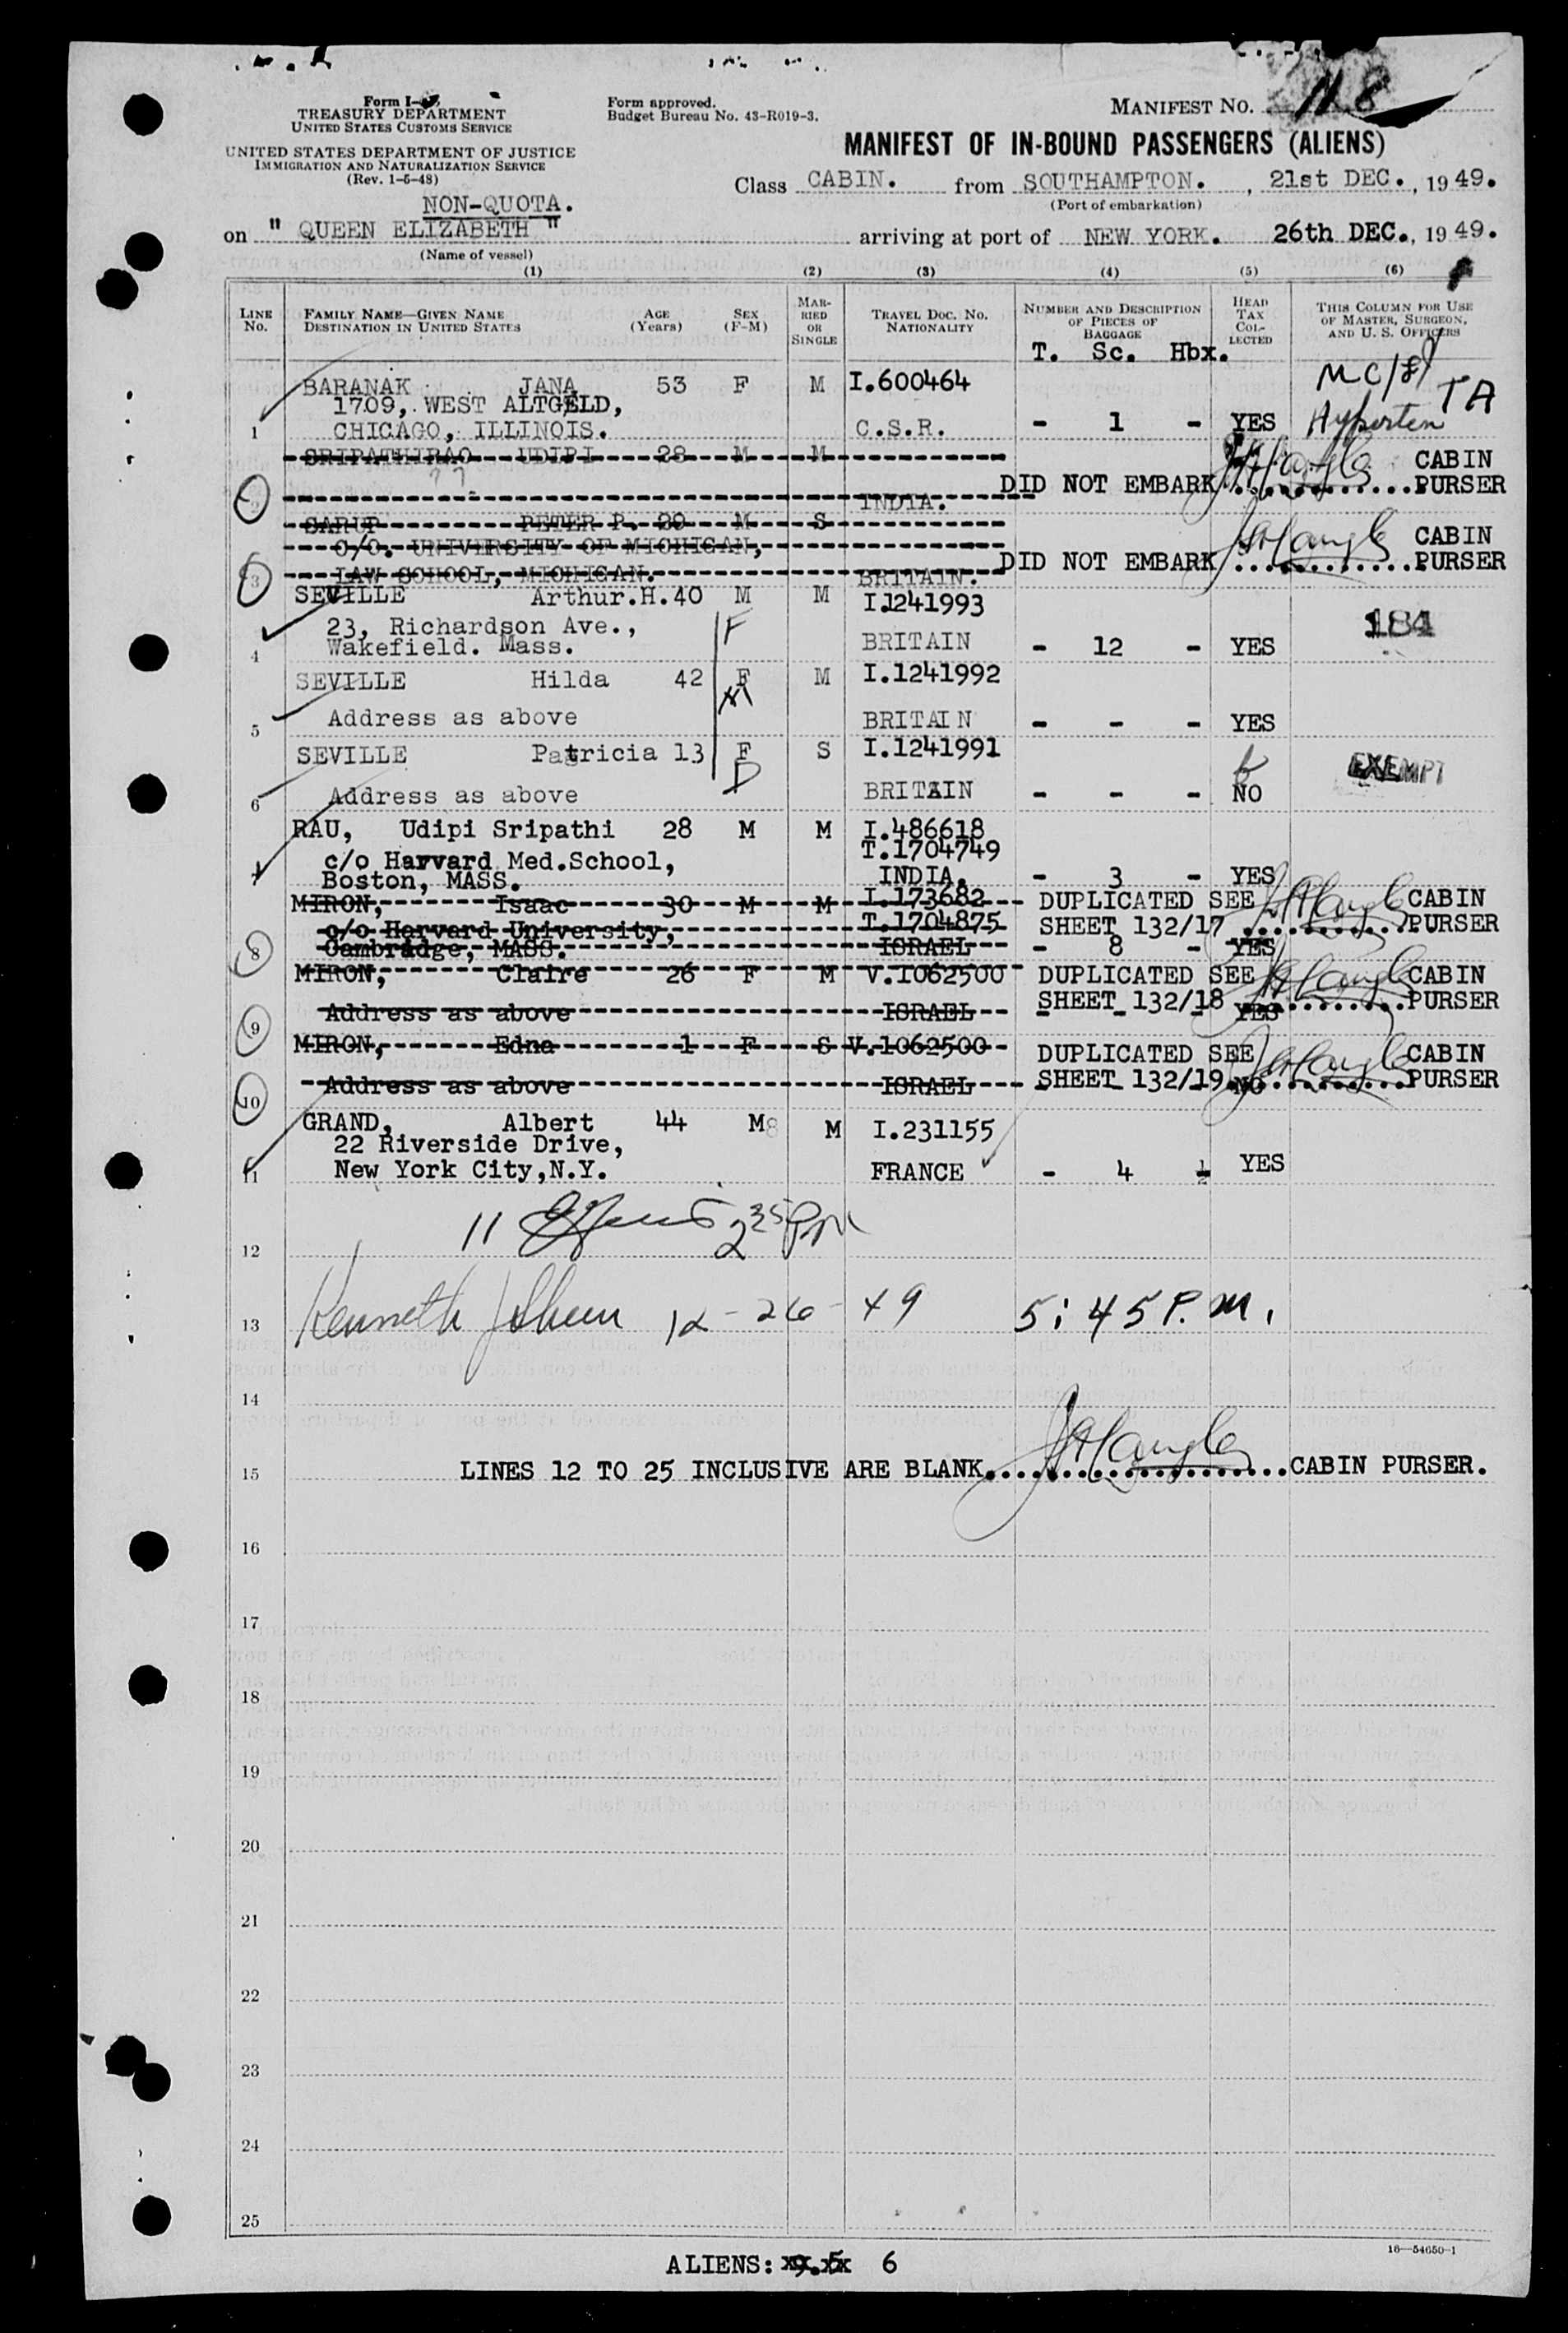 Form I-
TREASURY DEPARTMENT
UNITED STATES CUSTOMS SERVICE
UNITED STATES DEPARTMENT OF JUSTICE
IMMIGRATION AND NATURALIZATION SERVICE
(Rev. 1-5-48)
Form approved.
Budget Bureau No. 43-R019-3.
MANIFEST NO. 118
MANIFEST OF IN-BOUND PASSENGERS (ALIENS)
Class CABIN. from SOUTHAMPTON. , 21st DEC. , 19 49.
(Port of embarkation)
NON-QUOTA.
on " QUEEN ELIZABETH " arriving at port of NEW YORK. 26th DEC., 19 49.
(Name of vessel)
(1) (2) (3) (4) (5) (6)
LINE No. FAMILY NAME—GIVEN NAME DESTINATION IN UNITED STATES AGE (Years) SEX (F-M) MARRIED OR SINGLE TRAVEL DOC. NO. NATIONALITY NUMBER AND DESCRIPTION OF PIECES OF BAGGAGE HEAD TAX COLLECTED THIS COLUMN FOR USE OF MASTER, SURGEON, AND U. S. OFFICERS
T. Sc. Hbx.
BARANAK JANA 53 F M I.600464
1709, WEST ALTGELD,
1 CHICAGO, ILLINOIS. C.S.R. - 1 - YES
TA
SRIPATHIRAO UDIPI 28 M M CABIN
INDIA. DID NOT EMBARK PURSER
SARUP PETER P. 29 M S
C/O. UNIVERSITY OF MICHIGAN, CABIN
3 LAW SCHOOL, MICHIGAN. BRITAIN. DID NOT EMBARK PURSER
SEVILLE Arthur.H. 40 M M I.1241993
23, Richardson Ave., F 184
4 Wakefield. Mass. BRITAIN - 12 - YES
SEVILLE Hilda 42 F M I.1241992
M
5 Address as above BRITAIN - - - YES
SEVILLE Patricia 13 F S I.1241991
D EXEMPT
6 Address as above BRITAIN - - - NO
RAU, Udipi Sripathi 28 M M I.486618
c/o Harvard Med.School, T.1704749
Boston, MASS. INDIA. - 3 - YES
MIRON, Isaac 30 M M I.173682 DUPLICATED SEE CABIN
c/o Harvard University, T.1704875 SHEET 132/17 PURSER
8 Cambridge, MASS. ISRAEL - 8 - YES
MIRON, Claire 26 F M V.1062500 DUPLICATED SEE CABIN
9 Address as above ISRAEL SHEET 132/18 PURSER
- - - YES
MIRON, Edna 1 F S V.1062500 DUPLICATED SEE CABIN
10 Address as above ISRAEL SHEET 132/19 PURSER
- - - NO
GRAND, Albert 44 M M I.231155
22 Riverside Drive,
11 New York City,N.Y. FRANCE - 4 YES
11 2 35 PM
12
13 Kenneth 12-26-49 5:45 P.M.
14
15 LINES 12 TO 25 INCLUSIVE ARE BLANK. CABIN PURSER.
16
17
18
19
20
21
22
23
24
25
16—54650-1
ALIENS: 6